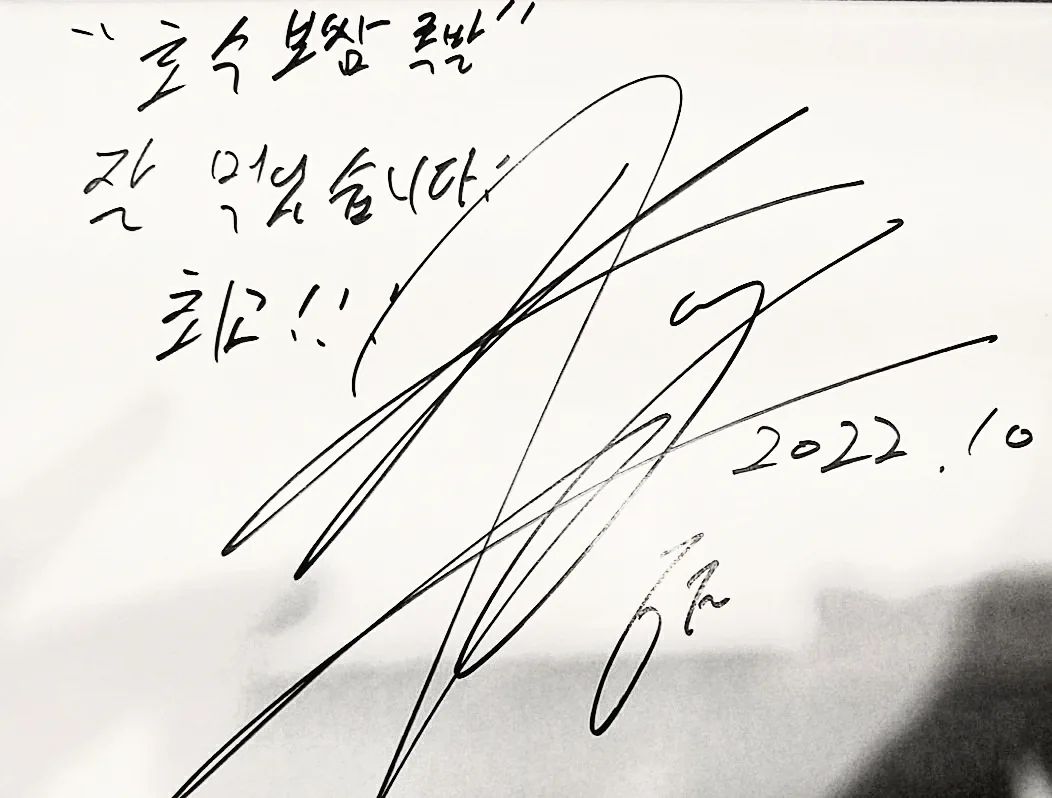 "호수 보쌈 족발"
잘 먹었습니다!
최고!!!
2022.10